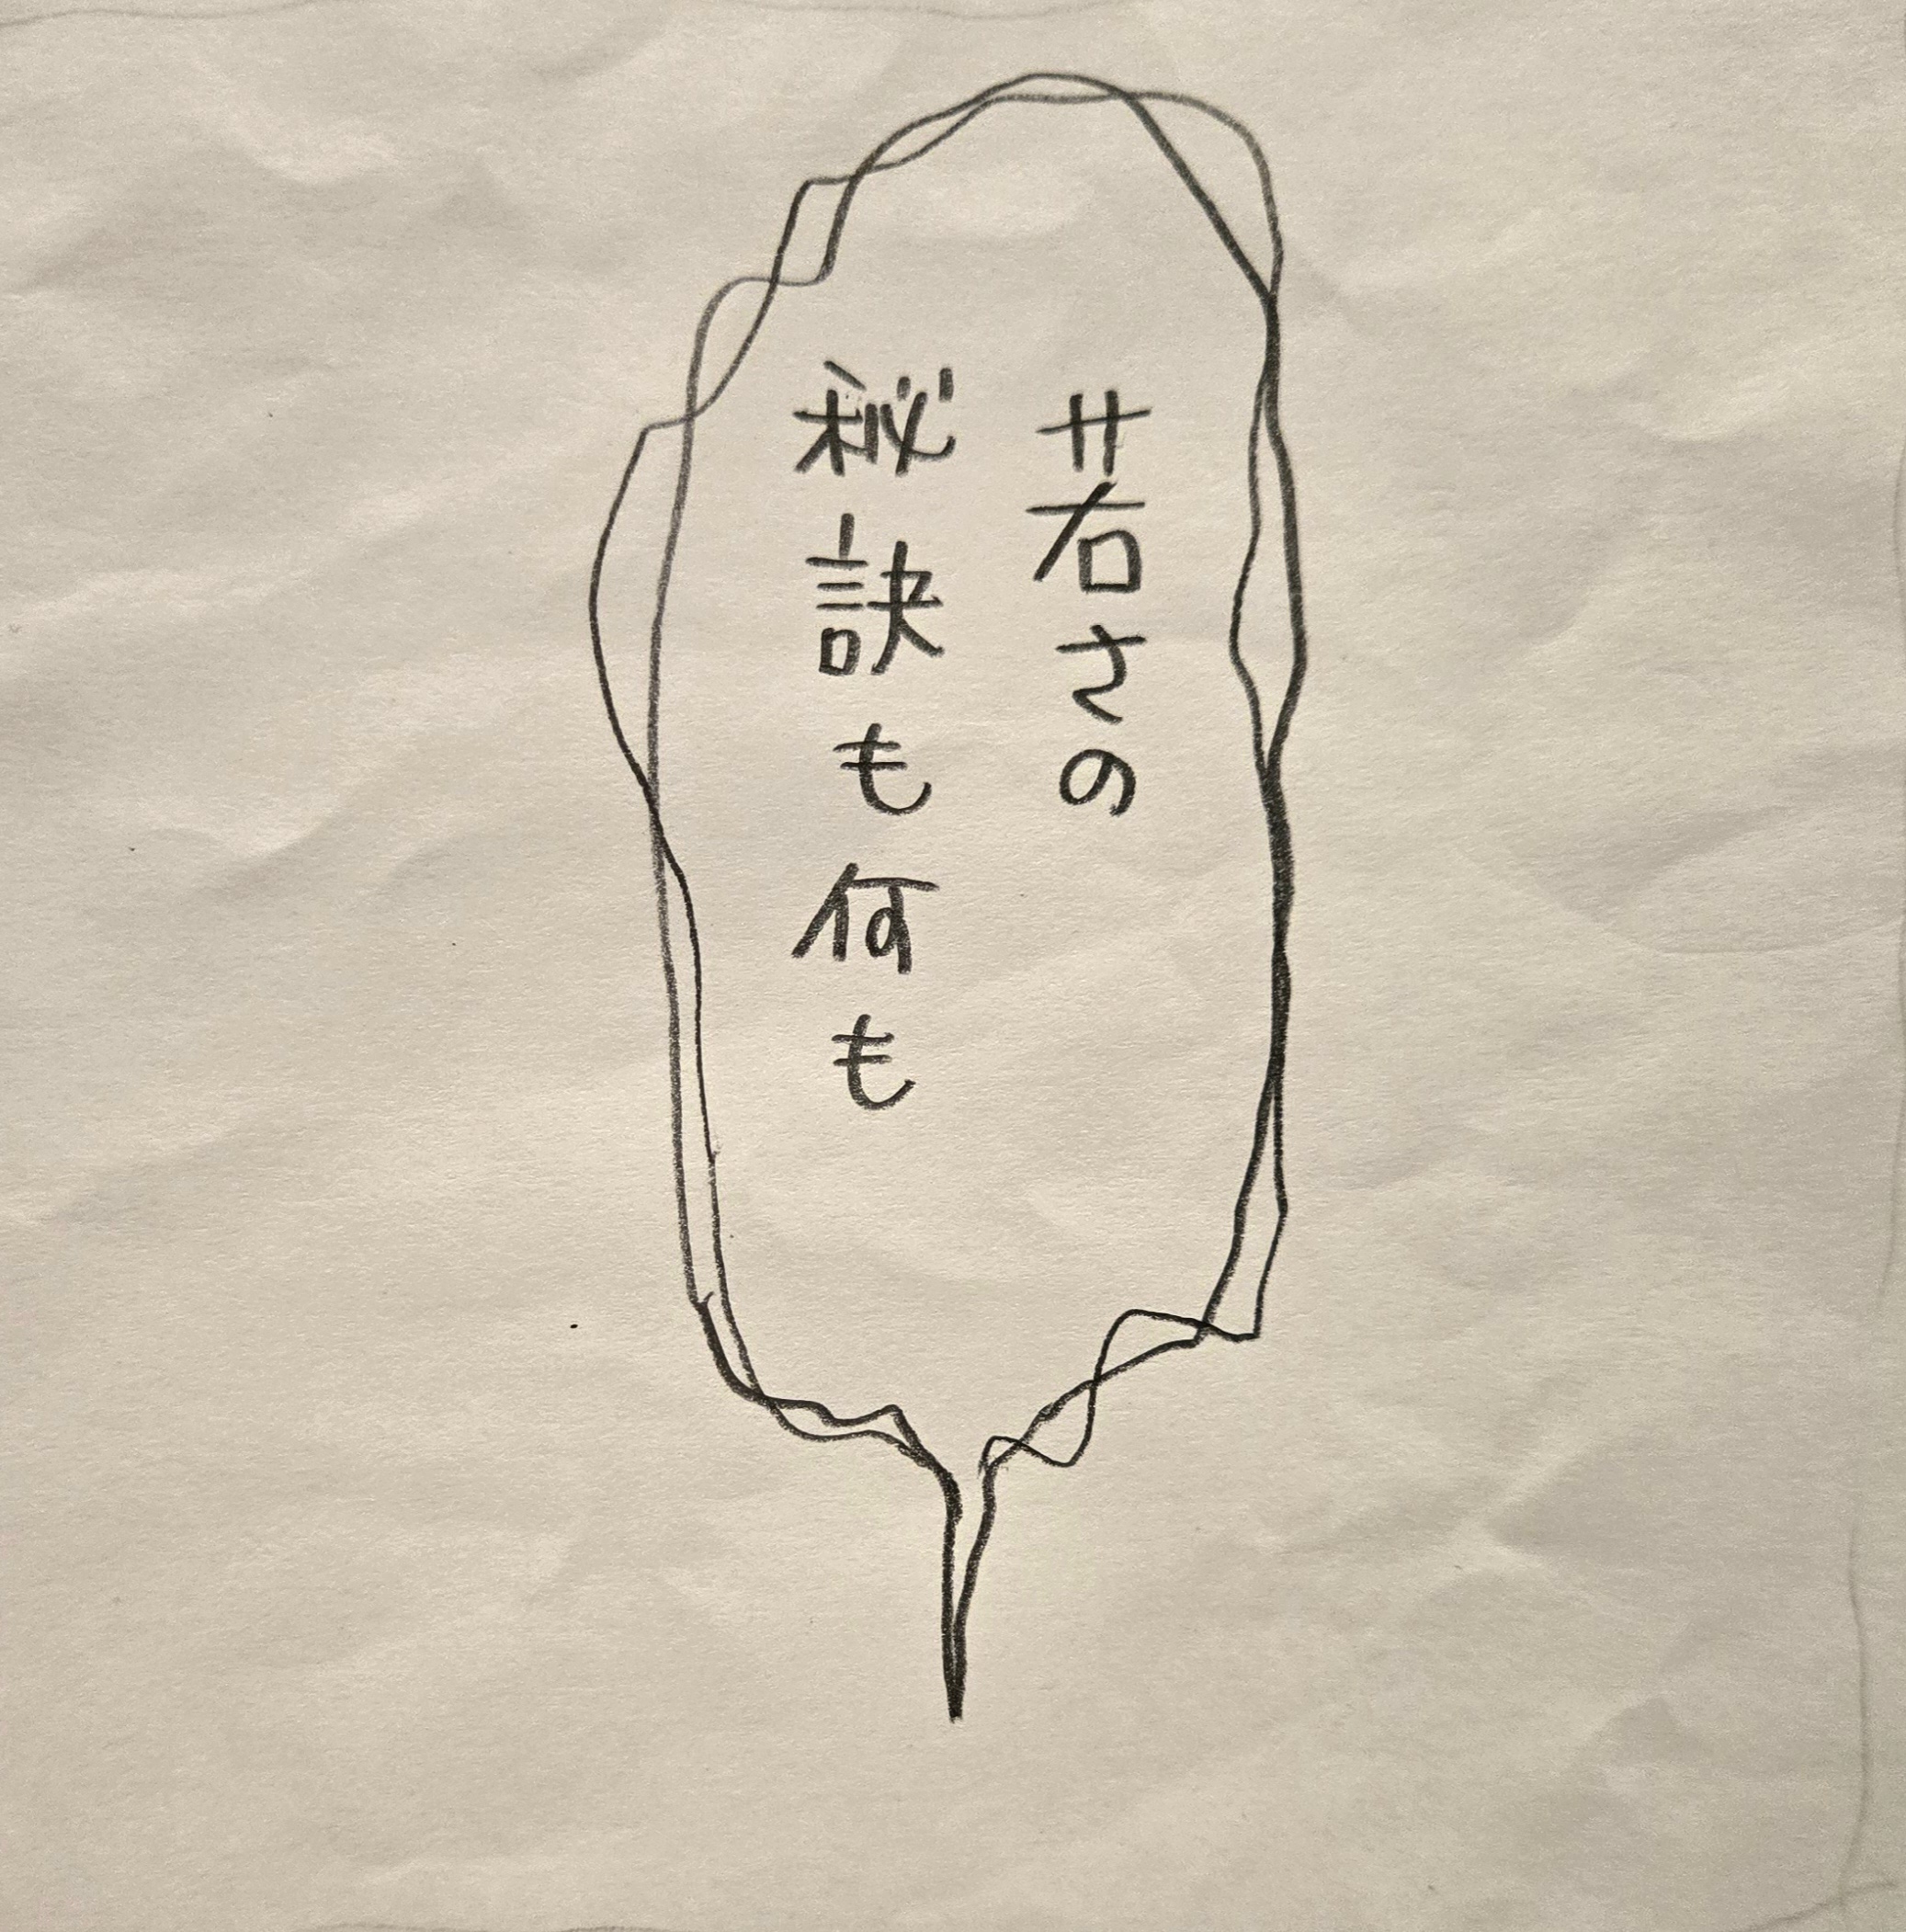 若さの
秘訣も何も